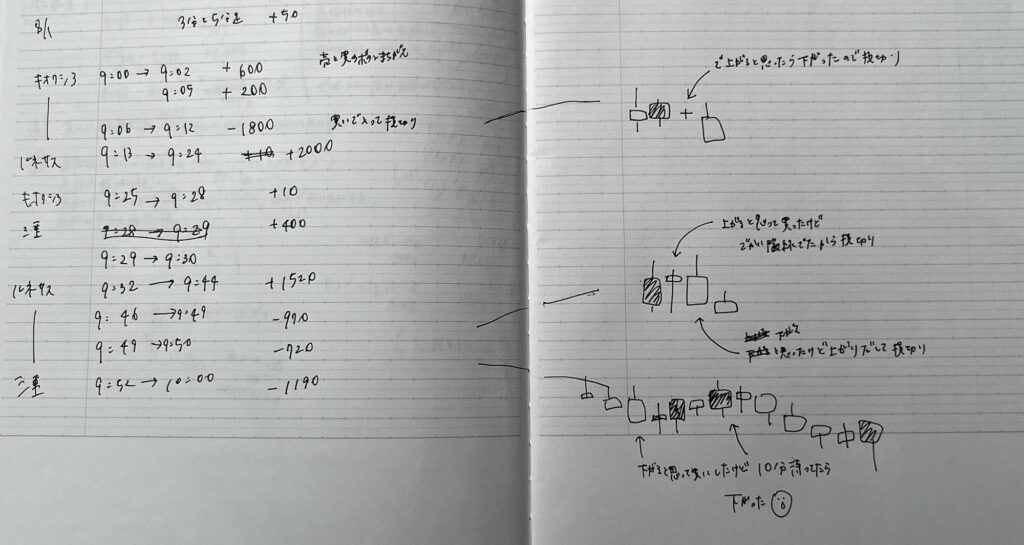 8/1 3分と5分足 +50
キオクシア 9:00 → 9:02 +600 売と買のボタンまちがえ
9:05 +200
9:06 → 9:12 -1800 買いで入って損切り
ルネサス 9:13 → 9:24 +2000
キオクシア 9:25 → 9:28 +10
三重 9:28 → 9:29 +400
9:29 → 9:30
ルネサス 9:32 → 9:44 +1520
9:46 → 9:49 -990
9:49 → 9:50 -720
三重 9:52 → 10:00 -1190
で上がると思ったら下がったので損切り
+
上がると思って買ったけど
でかい陰線でたから損切り
下がる
と思ったけど上がりだして損切り
下がると思って
したけど 10分待ってたら
下がった